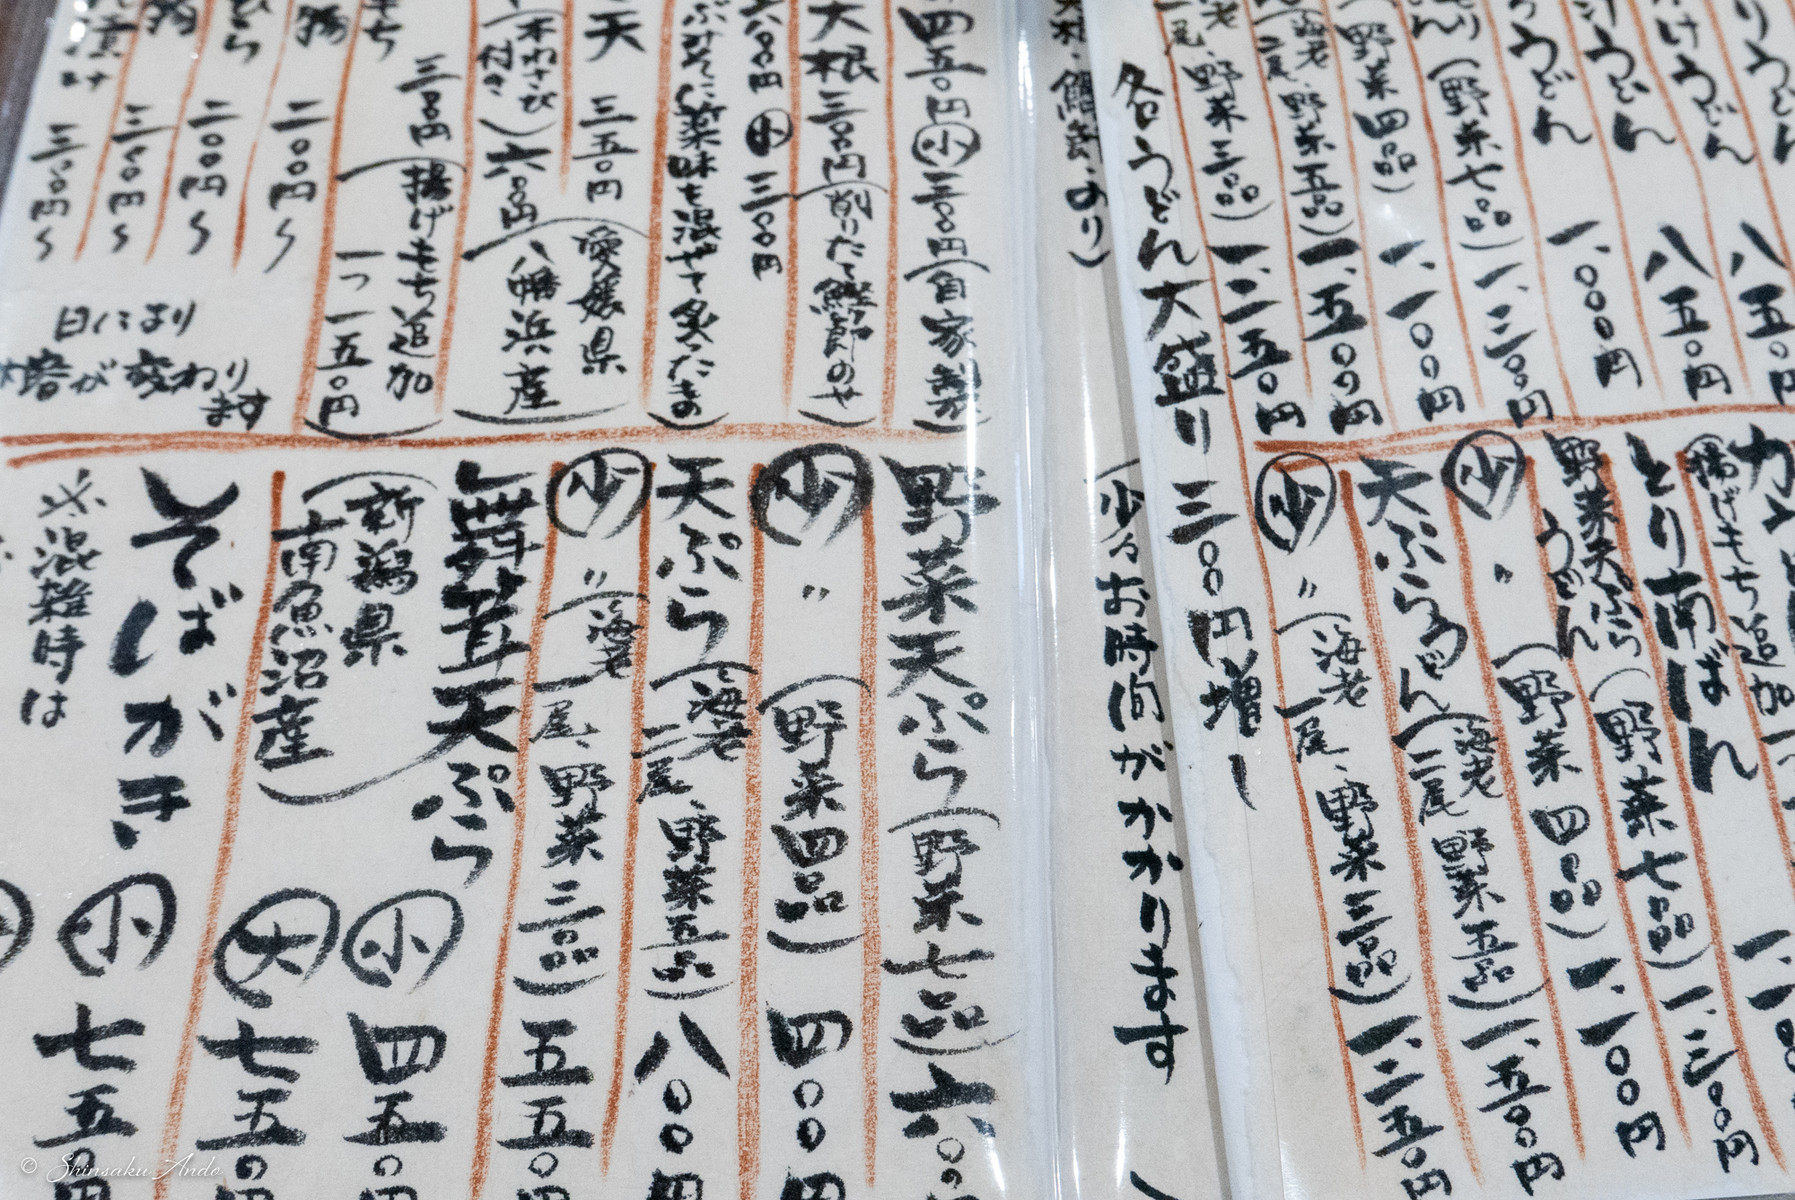 うどん 八五〇円
けうどん 八五〇円
汁うどん 一、〇〇〇円
うどん
(野菜七品) 一、三〇〇円
(野菜四品) 一、一〇〇円
(海老二尾、野菜五品) 一、五〇〇円
一尾、野菜三品) 一、二五〇円
各うどん大盛り三〇〇円増し
揚げもち追加
とり南ばん
野菜天ぷらうどん(野菜七品) 一、三〇〇円
㋛少 〃 (野菜四品) 一、一〇〇円
天ぷらうどん(海老二尾 野菜五品) 一、五〇〇円
少 〃 (海老一尾、野菜三品) 一、二五〇円
より)
(少々お時間がかかります
四五〇円 小 三〇〇円(自家製)
大根 三〇〇円(削りたて鰹節のせ)
六〇〇円 小 三〇〇円
薬味を混ぜて炙ったもの)
天 三五〇円
(本わさび付き) 六〇〇円(愛媛県八幡浜産)
もち 三〇〇円(揚げもち追加一つ一五〇円)
二〇〇円〜
二〇〇円〜
三〇〇円〜
漬け 三〇〇円〜
日により
が変わります
野菜天ぷら(野菜七品) 六〇〇
少 〃 (野菜四品) 四〇〇円
天ぷら(海老二尾、野菜五品) 八〇〇円
少 〃 (海老一尾、野菜三品) 五五〇円
舞茸天ぷら(新潟県南魚沼産) 小 四五〇円
大 七五〇円
そばがき 小 七五〇円
※混雑時は
© Shinsaku Ando